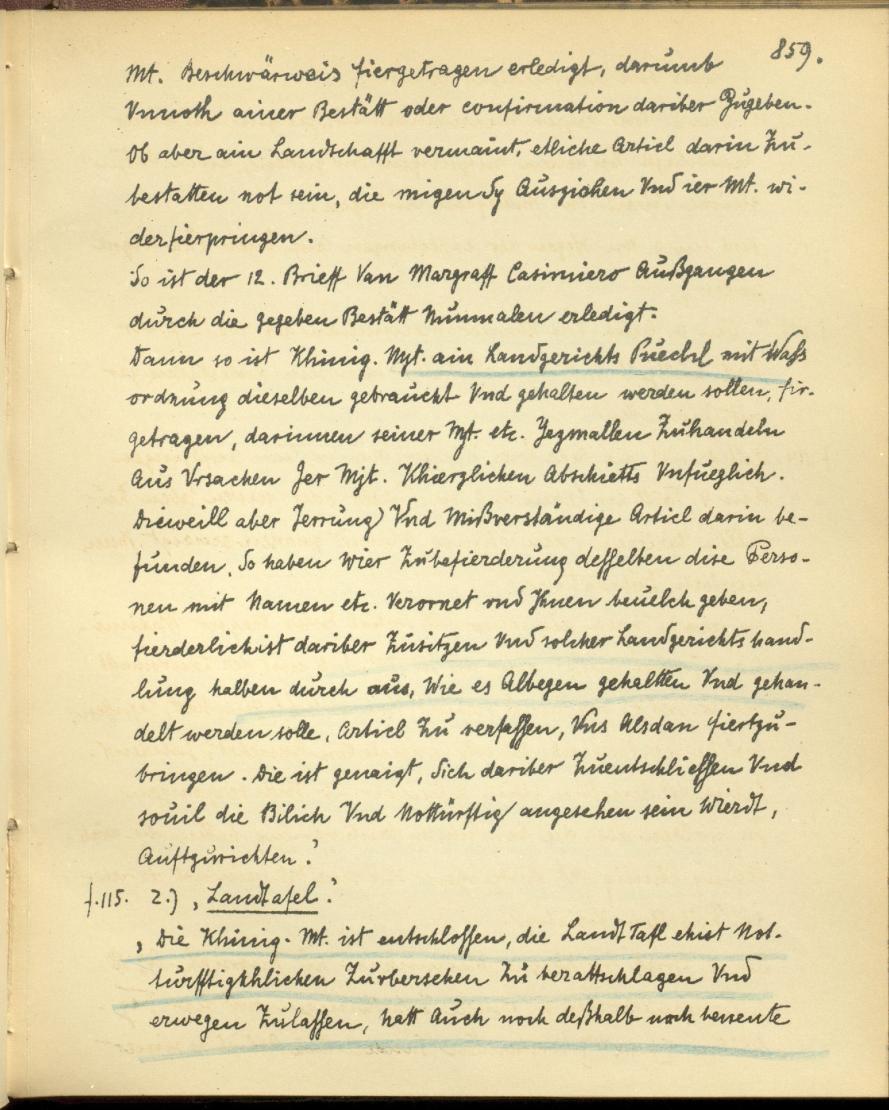 859.
Mt. Beschwärweis fiergetragen erledigt, darumb
Vnnoth ainer Bestätt oder confirmation dariber Zugeben.
Ob aber ain Landschafft vermaint, etliche Articl darin Zu-
bestatten not sein, die migen Sy Ausziehen Vnd ier Mt. wi-
derfierpringen.
So ist der 12. Brieff Van Margraff Casimiero Außgangen
durch die gegeben Bestätt Nunmalen erledigt.
Dann so ist Khinig. Myt. ain Landgerichts Puechl mit Wass
ordnung dieselben gebraucht Vnd gehalten werden sollen, fir-
getragen, darinnen seiner Mt. etc. Yezmallen Zuhandeln
Aus Vrsachen Jer Mjt. Khierzlichen Abschietts Vnfueglich.
Dieweill aber Jerrung) Vnd Mißverständige Articl darin be-
funden, So haben Wier Zubefierderung desselben dise Perso-
nen mit Namen etc. Verornet vnd Jhnen beuelch geben,
fierderlichist dariber Zusitzen Vnd solcher Landgerichts hand-
lung halben durch aus, Wie es Albegen gehaltten Vnd gehan-
delt werden solle, Articl Zu verfassen, Vns Alsdan fiertzu-
bringen. Die ist genaigt, Sich dariber Zuentschliessen Vnd
souil die Bilich Vnd Notturftig angesehen sein Wierdt,
Auftzurichten."
f.115. 2.) "Landtafel".
"Die Khinig. Mt. ist entschlossen, die Landt Tafl ehist Not-
turfftigkhlichen Zurbersehen Zu berattschlagen Vnd
erwegen Zulassen, hatt Auch noch deßhalb nach benente